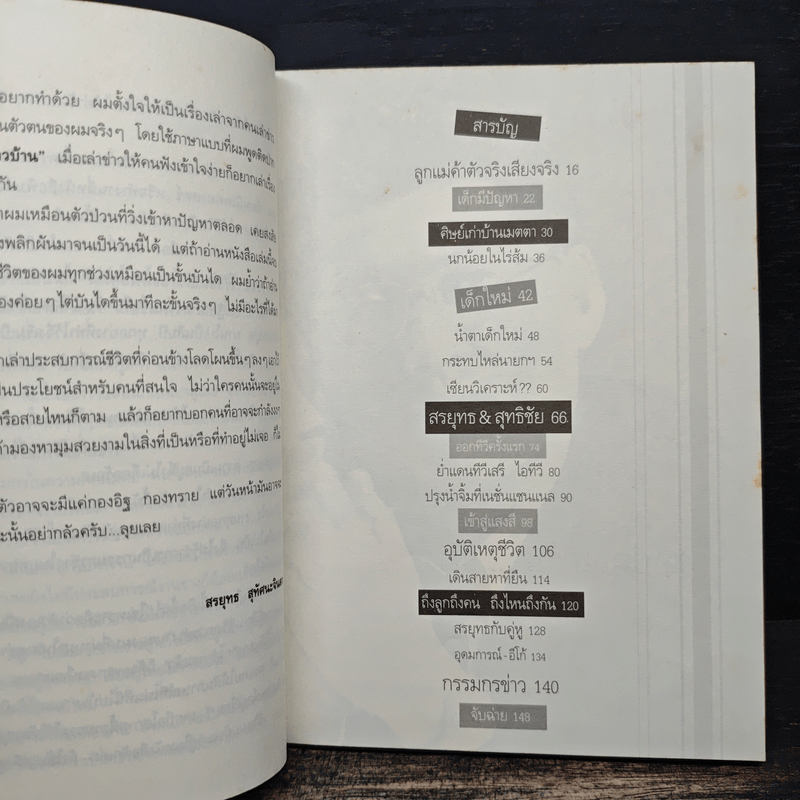 อยากทำด้วย ผมตั้งใจให้เป็นเรื่องเล่าจากคนเล่าข่าว
นตัวตนของผมจริงๆ โดยใช้ภาษาแบบที่ผมพูดติดปาก
วบ้าน" เมื่อเล่าข่าวให้คนฟังเข้าใจง่ายก็อยากเล่าเรื่อง
กัน
าผมเหมือนตัวป่วนที่วิ่งเข้าหาปัญหาตลอด เคยสงสัย
งพลิกผันมาจนเป็นวันนี้ได้ แต่ถ้าอ่านหนังสือเล่มนี้จะ
ชีวิตของผมทุกช่วงเหมือนเป็นขั้นบันได ผมย้ำว่าถ้าอ่าน
องค่อยๆ ไต่บันไดขึ้นมาทีละขั้นจริงๆ ไม่มีอะไรที่ได้มา
กเล่าประสบการณ์ชีวิตที่ค่อนข้างโลดโผนขึ้นๆ ลงๆ
ป็นประโยชน์สำหรับคนที่สนใจ ไม่ว่าใครคนนั้นจะอยู่
หรือสายไหนก็ตาม แล้วก็อยากบอกคนที่อาจจะกำลัง
ถ้ามองหามุมสวยงามในสิ่งที่เป็นหรือที่ทำอยู่ไม่เจอ ก็
ตัวอาจจะมีแค่กองอิฐ กองทราย แต่วันหน้ามันอาจจะ
ะนั้นอย่ากลัวครับ...ลุยเลย
สรยุทธ สุทัศนะจินดา
สารบัญ
ลูกแม่ค้าตัวจริงเสียงจริง 16
เด็กมีปัญหา 22
ศิษย์เก่าบ้านเมตตา 30
นกน้อยในไร่ส้ม 36
เด็กใหม่ 42
น้ำตาเด็กใหม่ 48
กระทบไหล่นายกฯ 54
เซียนวิเคราะห์?? 60
สรยุทธ & สุทธิชัย 66
ออกทีวีครั้งแรก 74
ย่ำแดนทีวีเสรี ไอทีวี 80
ปรุงน้ำจิ้มที่เนชั่นแชนแนล 90
เข้าสู่แสงสี 98
อุบัติเหตุชีวิต 106
เดินสายหาที่ยืน 114
ถึงลูกถึงคน ถึงไหนถึงกัน 120
สรยุทธกับคู่หู 128
อุดมการณ์-อีโก้ 134
กรรมกรข่าว 140
จับฉ่าย 148